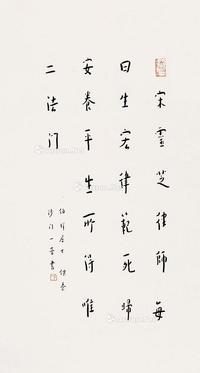 宋靈芝律師每
曰生宏律範死歸
安養平生所得唯
二法门
居士供養
沙门一音書